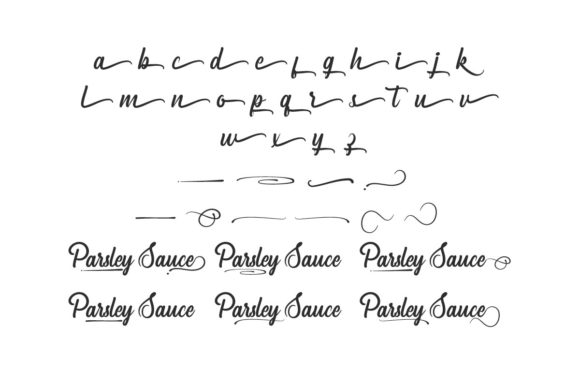 a b c d e f g h i j k
l m n o p q r s t u v
w x y z
Parsley Sauce Parsley Sauce Parsley Sauce
Parsley Sauce Parsley Sauce Parsley Sauce